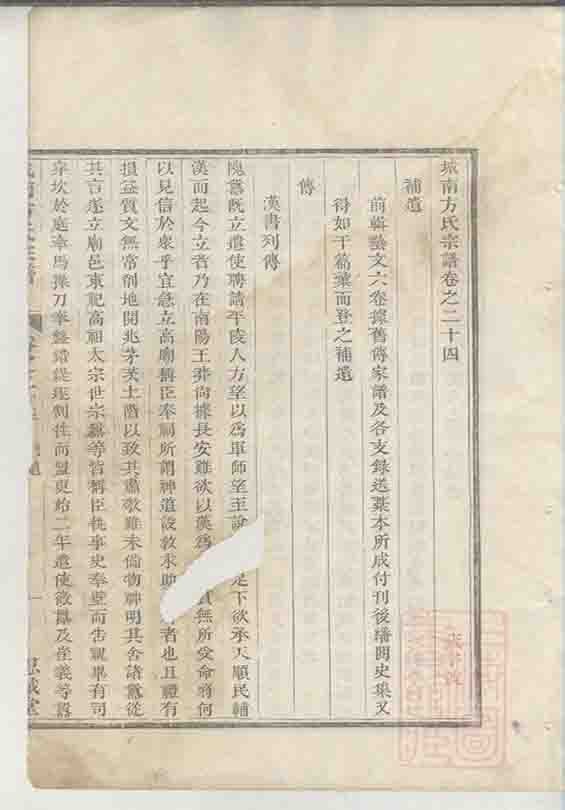 城南方氏宗譜卷之二十四
補遺
前輯藝文六卷據舊傳家譜及各支錄送藁本所成付刊後繙閱史集又
得如干篇彙而登之補遺
傳
漢書列傳
隗囂既立遣使聘請平陵人方望以為軍師望至說 足下欲承天順民輔
漢而起今立者乃在南陽王莽尚據長安雖欲以漢為 其實無所受命將何
以見信於眾乎宜急立高廟稱臣奉祠所謂神道設教求助 者也且禮有
損益質文無常削地開兆茅茨土階以致其肅敬雖未備物神明其舍諸囂從
其言遂立廟邑東祀高祖太宗世宗囂等皆稱臣執事史奉璧而告祝畢有司
穿坎於庭牽馬操刀奉盤錯鍉遂割牲而盟更始二年遣使徵囂及崔義等囂
城南方氏宗譜
遺
一
思誠堂
圖